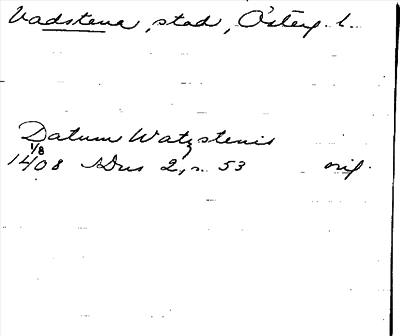 Vadstena, stad, Österg. l.
Datum Watzstenis
1/8
1408 SDns 2, n. 53 orig.